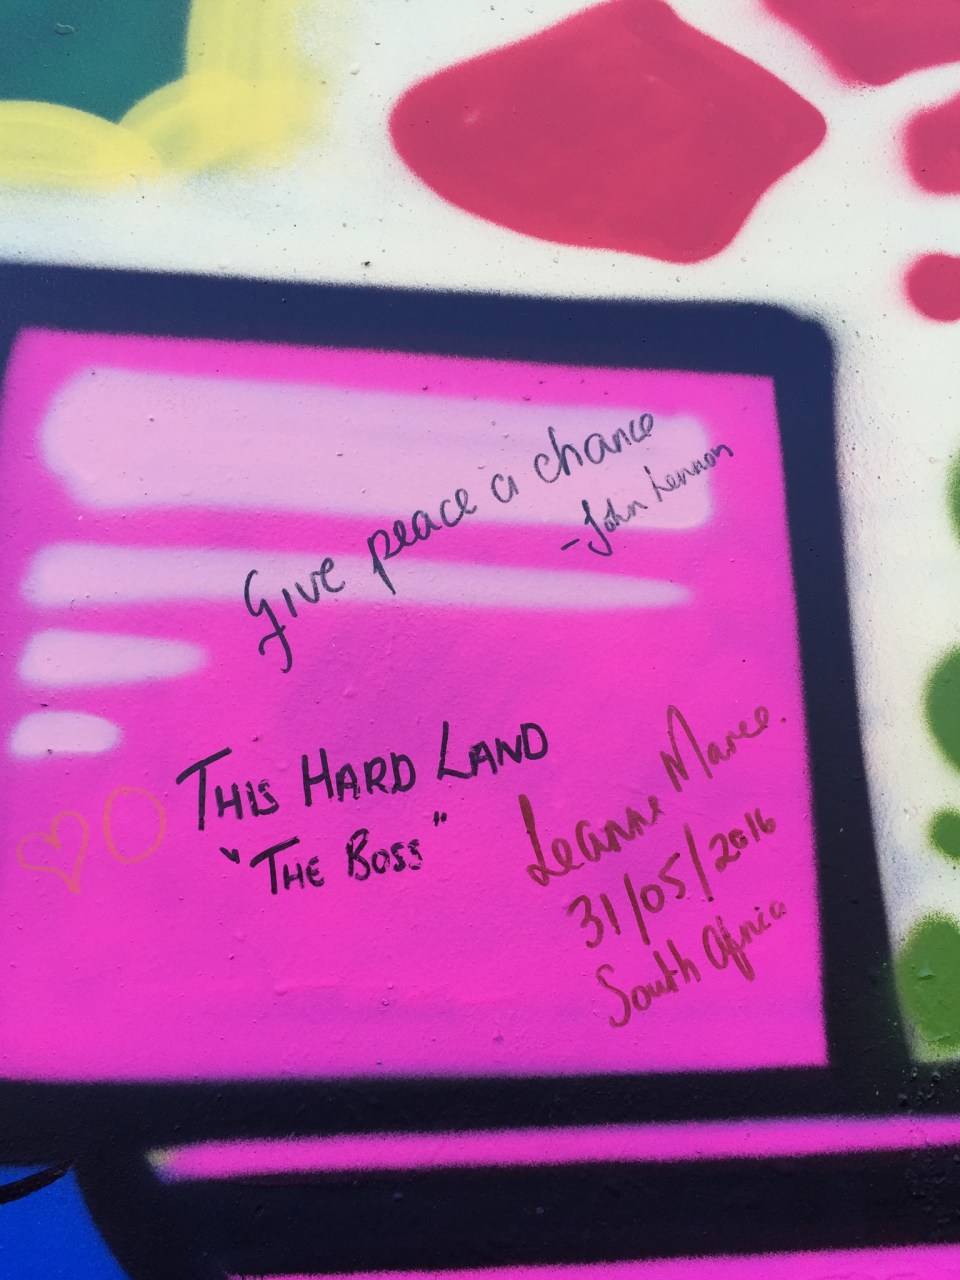 Give peace a chance
- John Lennon
THIS HARD LAND
"THE BOSS"
Leanne Maree.
31/05/2016
South Africa